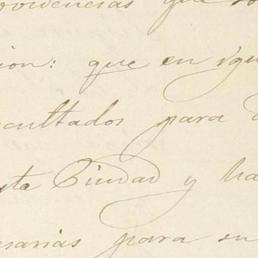 ovidencias que
ion: que en igu
cultados para
sta Ciudad y ha
sarias para su